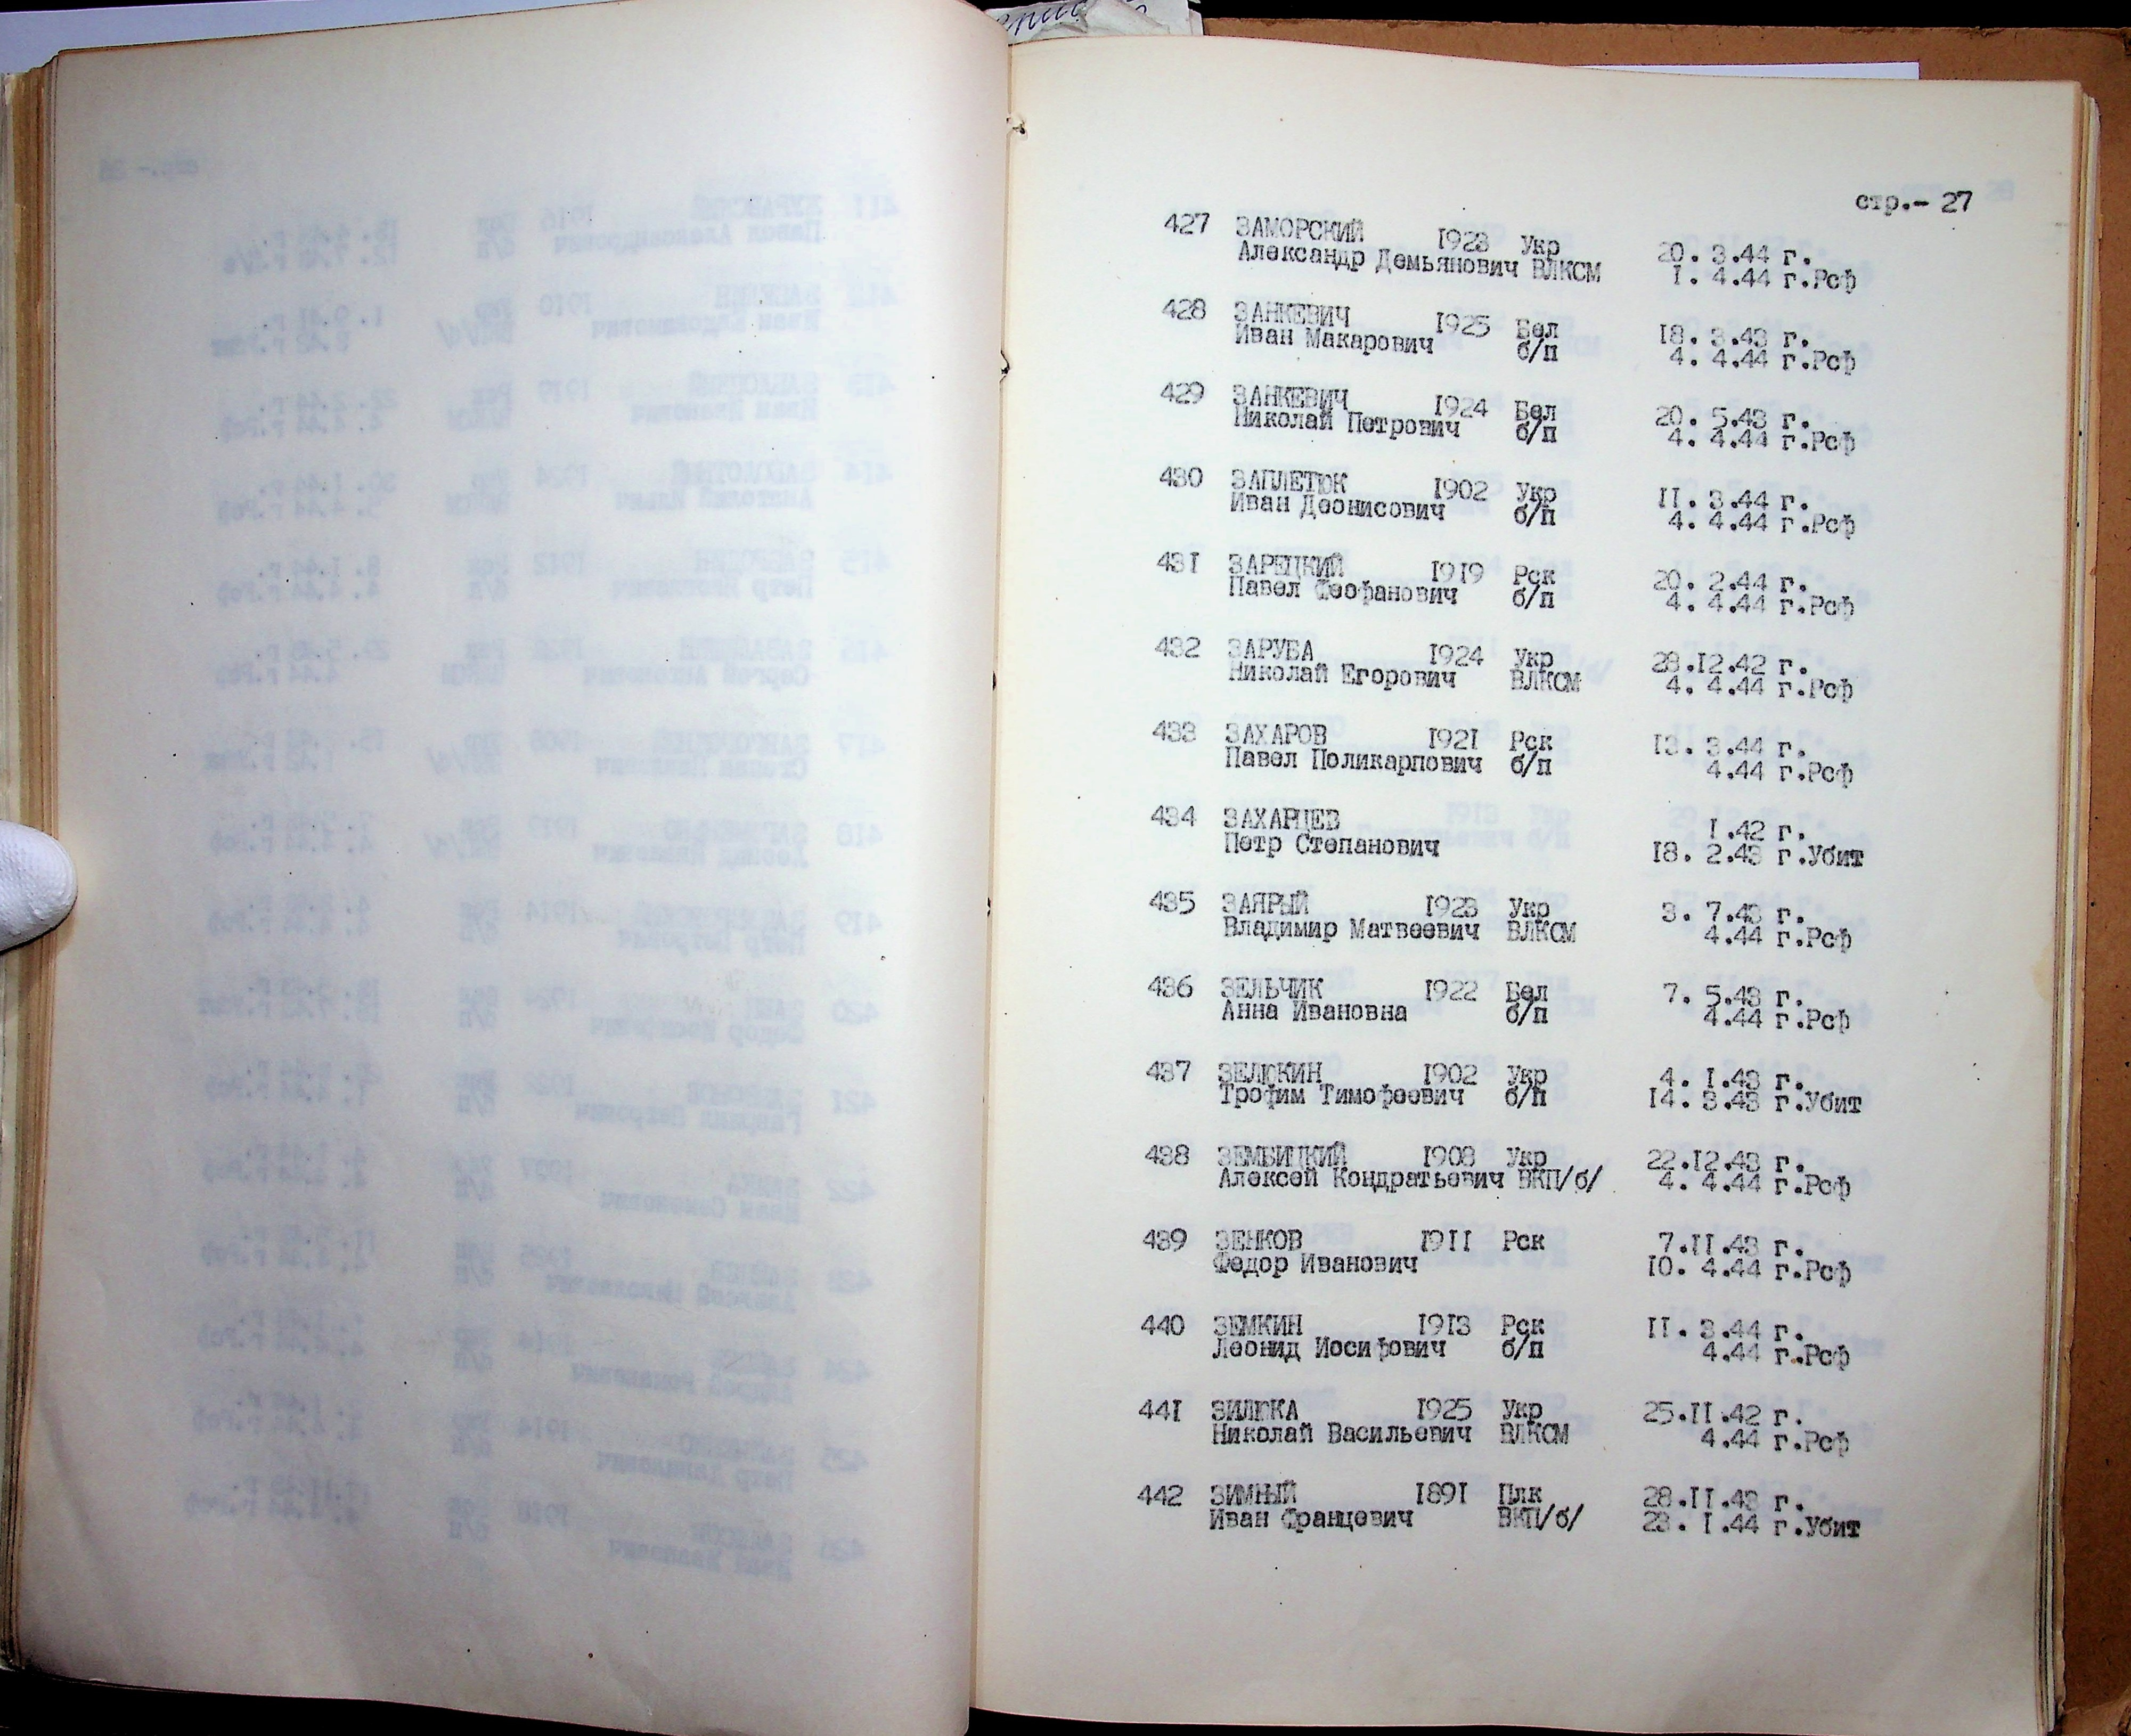 стр.- 27
427 ЗАМОРСКИЙ 1923 Укр 20. 3.44 г.
Александр Демьянович ВЛКСМ 1. 4.44 г.Рсф
428 ЗАНКЕВИЧ 1925 Бел 18. 3.43 г.
Иван Макарович б/п 4. 4.44 г.Рсф
429 ЗАНКЕВИЧ 1924 Бел 20. 5.43 г.
Николай Петрович б/п 4. 4.44 г.Рсф
430 ЗАПЛЕТЮК 1902 Укр 11. 3.44 г.
Иван Деонисович б/п 4. 4.44 г.Рсф
431 ЗАРЕЦКИЙ 1919 Рск 20. 2.44 г.
Павел Феофанович б/п 4. 4.44 г.Рсф
432 ЗАРУБА 1924 Укр 28.12.42 г.
Николай Егорович ВЛКСМ 4. 4.44 г.Рсф
433 ЗАХАРОВ 1921 Рск 13. 3.44 г.
Павел Поликарпович б/п 4.44 г.Рсф
434 ЗАХАРЦЕВ 1.42 г.
Петр Степанович 18. 2.43 г.Убит
435 ЗАЯРЫЙ 1923 Укр 3. 7.43 г.
Владимир Матвеевич ВЛКСМ 4.44 г.Рсф
436 ЗЕЛЬЧИК 1922 Бел 7. 5.43 г.
Анна Ивановна б/п 4.44 г.Рсф
437 ЗЕЛЮКИН 1902 Укр 4. 1.43 г.
Трофим Тимофеевич б/п 14. 3.43 г.Убит
438 ЗЕМБИЦКИЙ 1908 Укр 22.12.43 г.
Алексей Кондратьевич ВКП/б/ 4. 4.44 г.Рсф
439 ЗЕНКОВ 1911 Рск 7.11.43 г.
Федор Иванович 10. 4.44 г.Рсф
440 ЗЕМКИН 1913 Рск 11. 3.44 г.
Леонид Иосифович б/п 4.44 г.Рсф
441 ЗИЛЮКА 1925 Укр 25.11.42 г.
Николай Васильевич ВЛКСМ 4.44 г.Рсф
442 ЗИМНЫЙ 1891 Плк 28.11.43 г.
Иван Францевич ВКП/б/ 23. 1.44 г.Убит